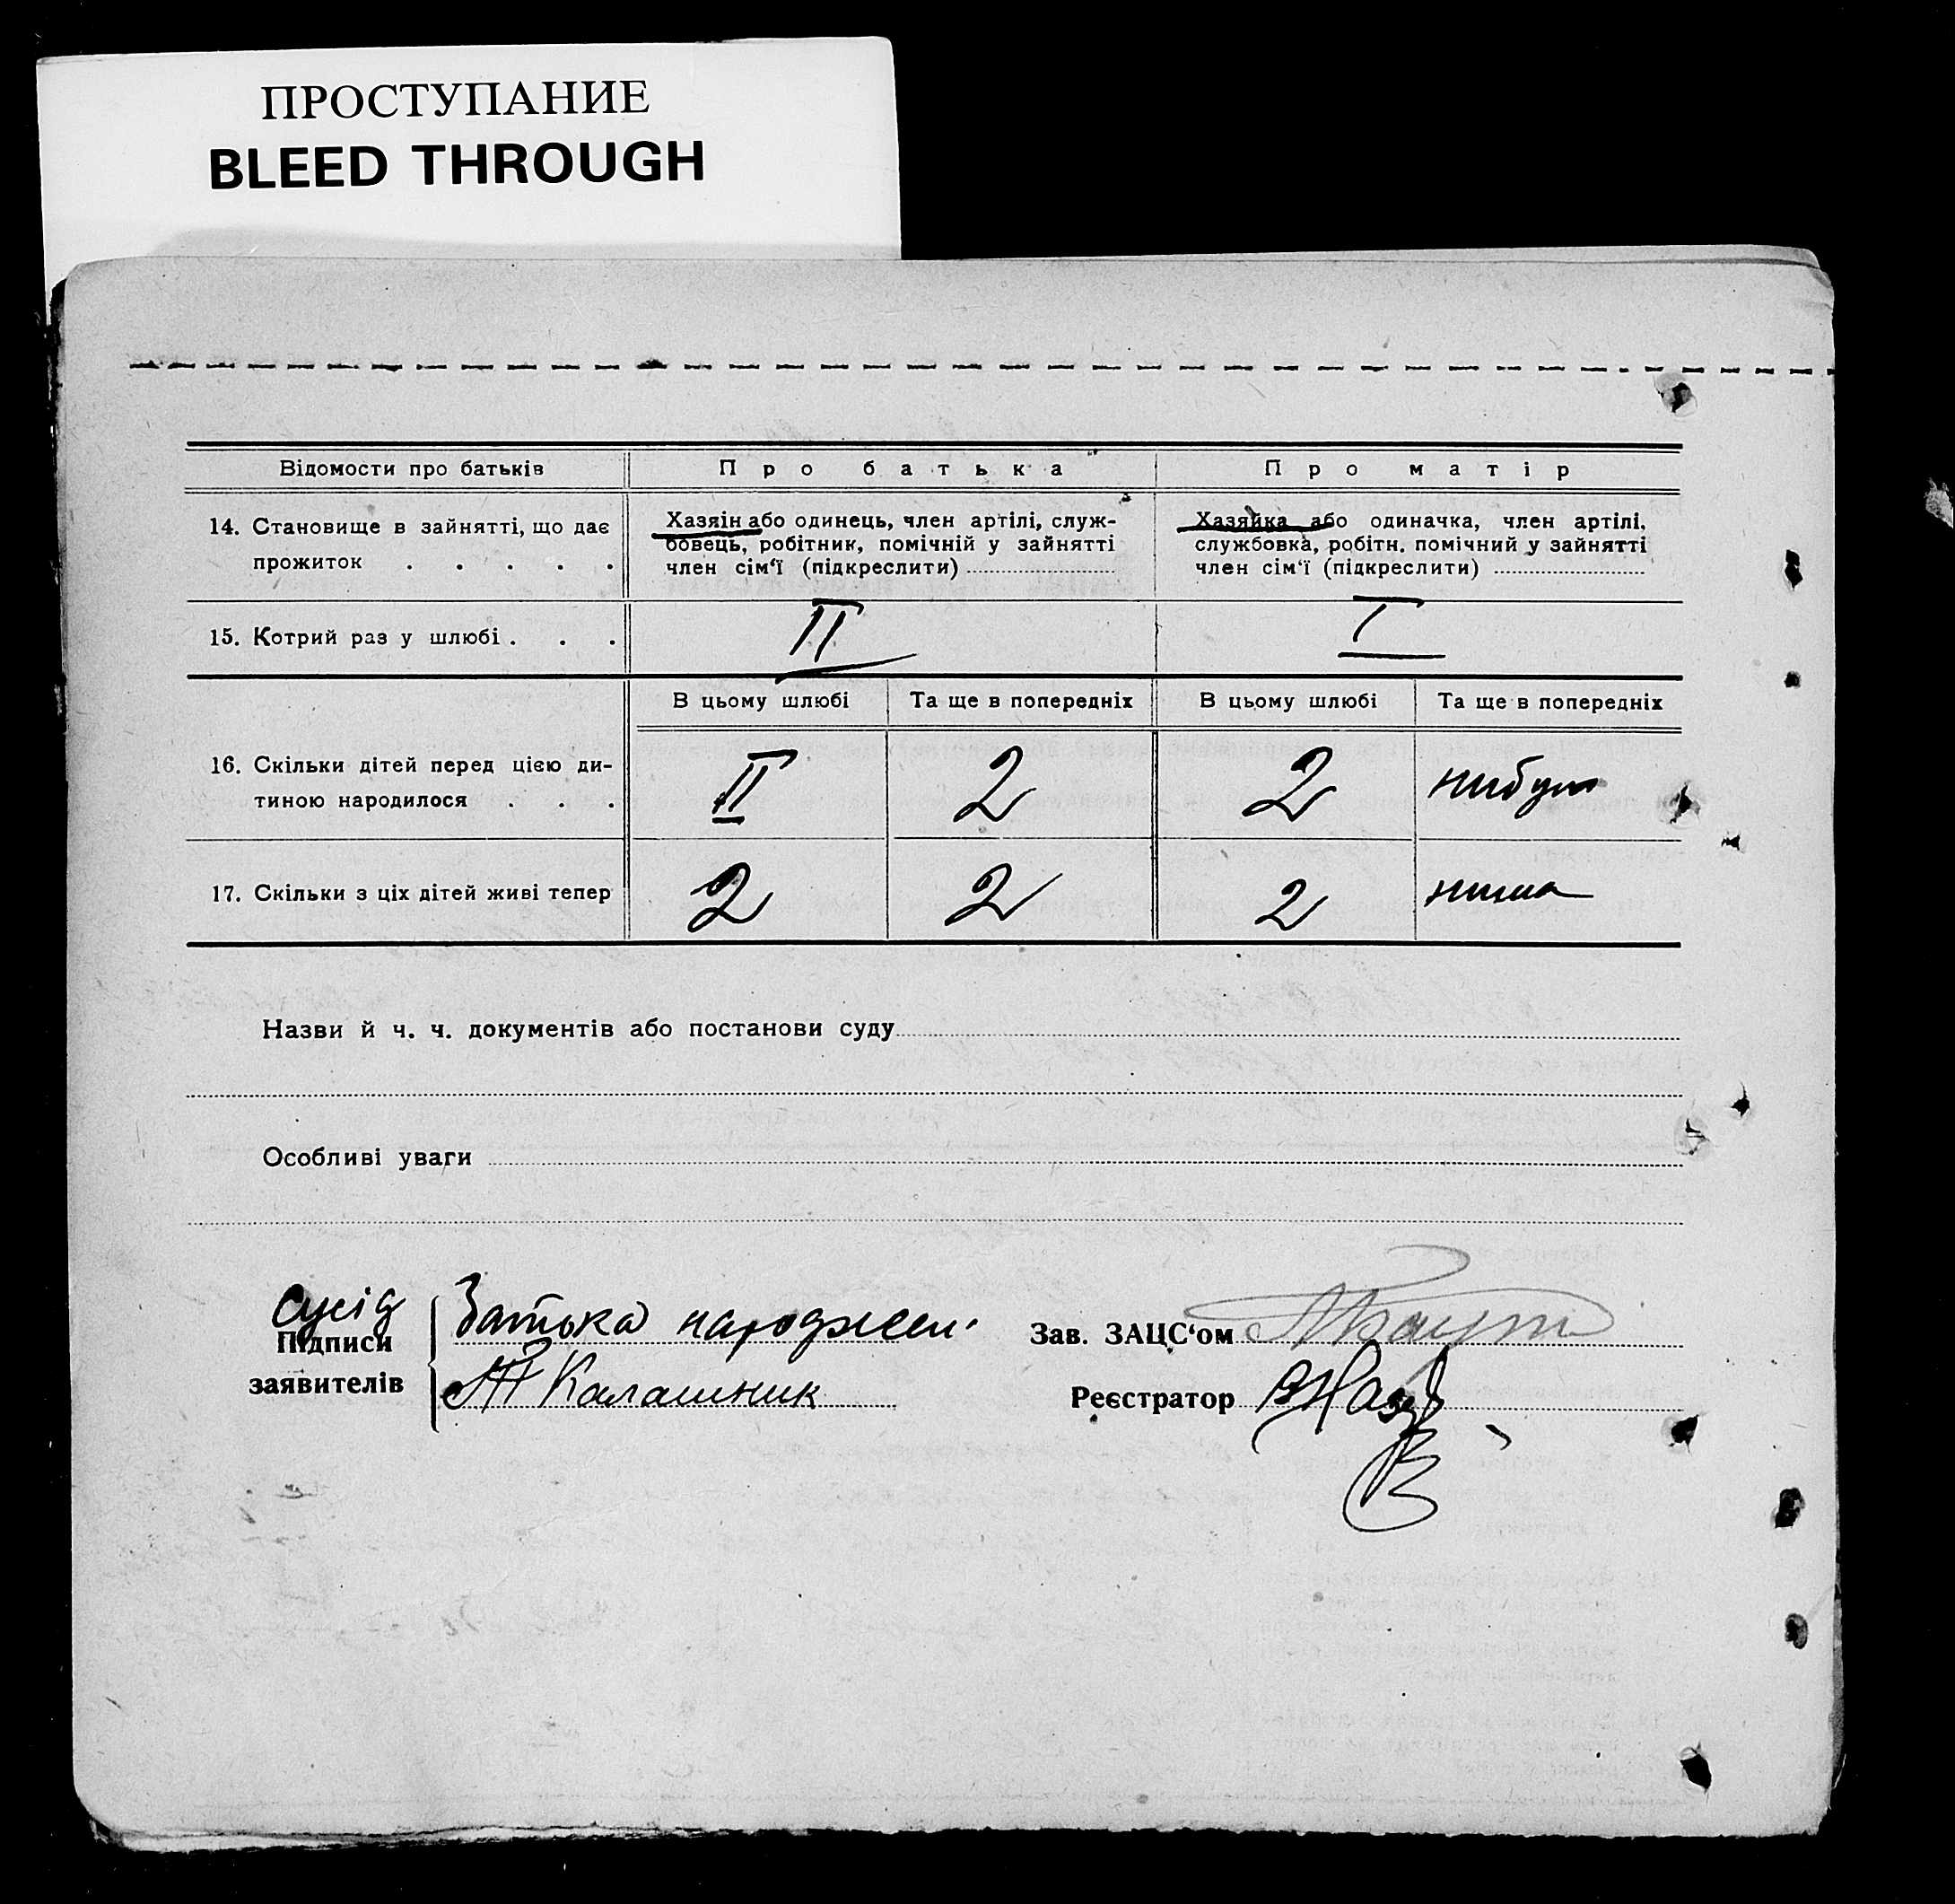 ПРОСТУПАНИЕ
BLEED THROUGH
Відомости про батьків
Про батька
Про матір
14. Становище в зайнятті, що дає
прожиток . . . . .
Хазяїн або одинець, член артілі, служ-
бовець, робітник, помічній у зайнятті
член сім'ї (підкреслити)
Хазяйка або одиначка, член артілі,
службовка, робітн. помічний у зайнятті
член сім'ї (підкреслити)
15. Котрий раз у шлюбі . . .
II
I
В цьому шлюбі
Та ще в попередніх
В цьому шлюбі
Та ще в попередніх
16. Скільки дітей перед цією ди-
тиною народилося . . .
II
2
2
17. Скільки з ціх дітей живі тепер
2
2
2
Назви й ч. ч. документів або постанови суду
Особливі уваги
сусід
Підписи
заявителів
Калашник
Зав. ЗАЦС'ом
Реєстратор